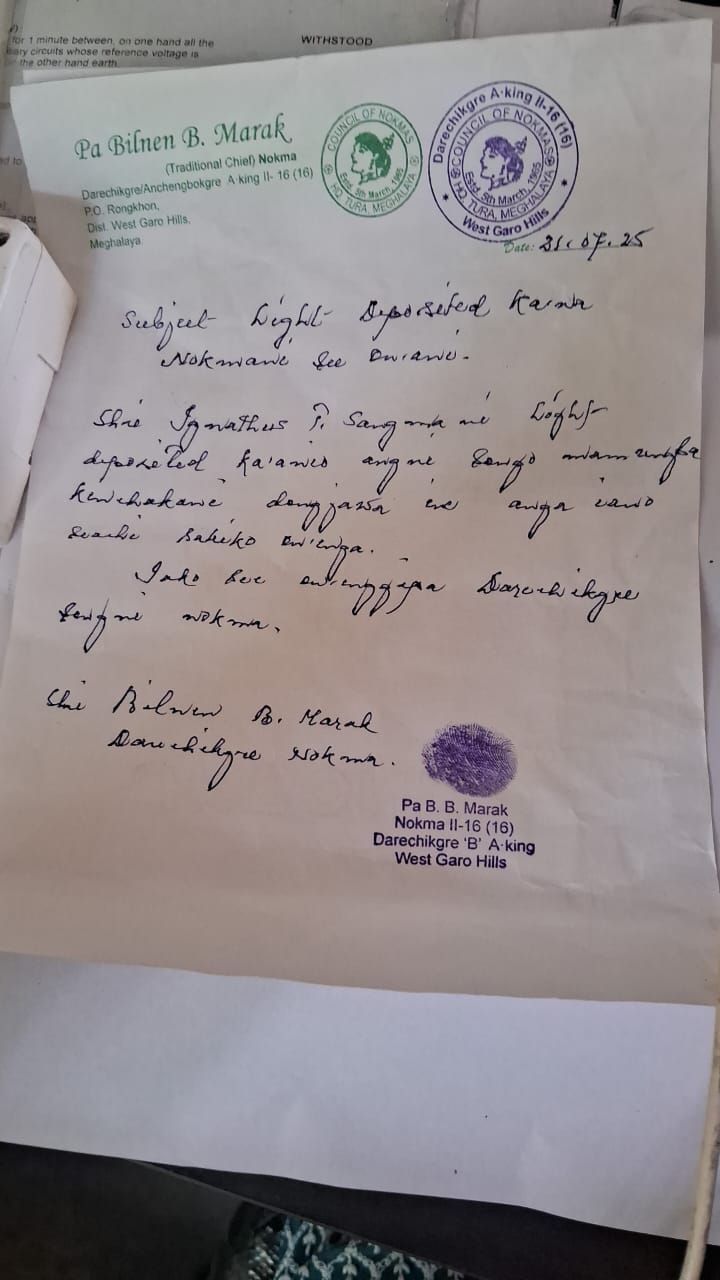 for 1 minute between, on one hand all the
circuits whose reference voltage is
the other hand earth.
WITHSTOOD
Pa Bilnen B. Marak
(Traditional Chief) Nokma
Darechikgre/Anchengbokgre A·king II- 16 (16)
P.O. Rongkhon,
Dist. West Garo Hills,
Meghalaya
COUNCIL OF NOKMAS
Estd. 5th March, 1965
HQ. TURA, MEGHALAYA
Darechikgre A·king II-16 (16)
COUNCIL OF NOKMAS
Estd. 5th March, 1965
HQ. TURA, MEGHALAYA
West Garo Hills
Date: 31.07.25
Subject Light Deposited Ka'na
Nokmani See on'ani.
Shri Ignathus Sangma ni Light
deposited ka'anio angni
dongjawa ine anga iano
on'enga.
Iako see on'enggipa Darechikgre
Songni nokma.
Shri Bilnen B. Marak
Darechikgre Nokma.
Pa B. B. Marak
Nokma II-16 (16)
Darechikgre 'B' A·king
West Garo Hills